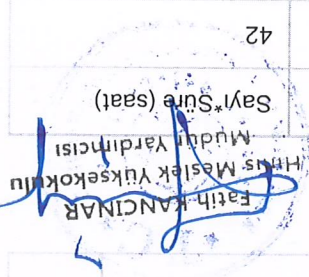 Fatih KANCINAR
Hınıs Meslek Yüksekokulu
Müdür Yardımcısı
Sayı*Süre (saat)
42